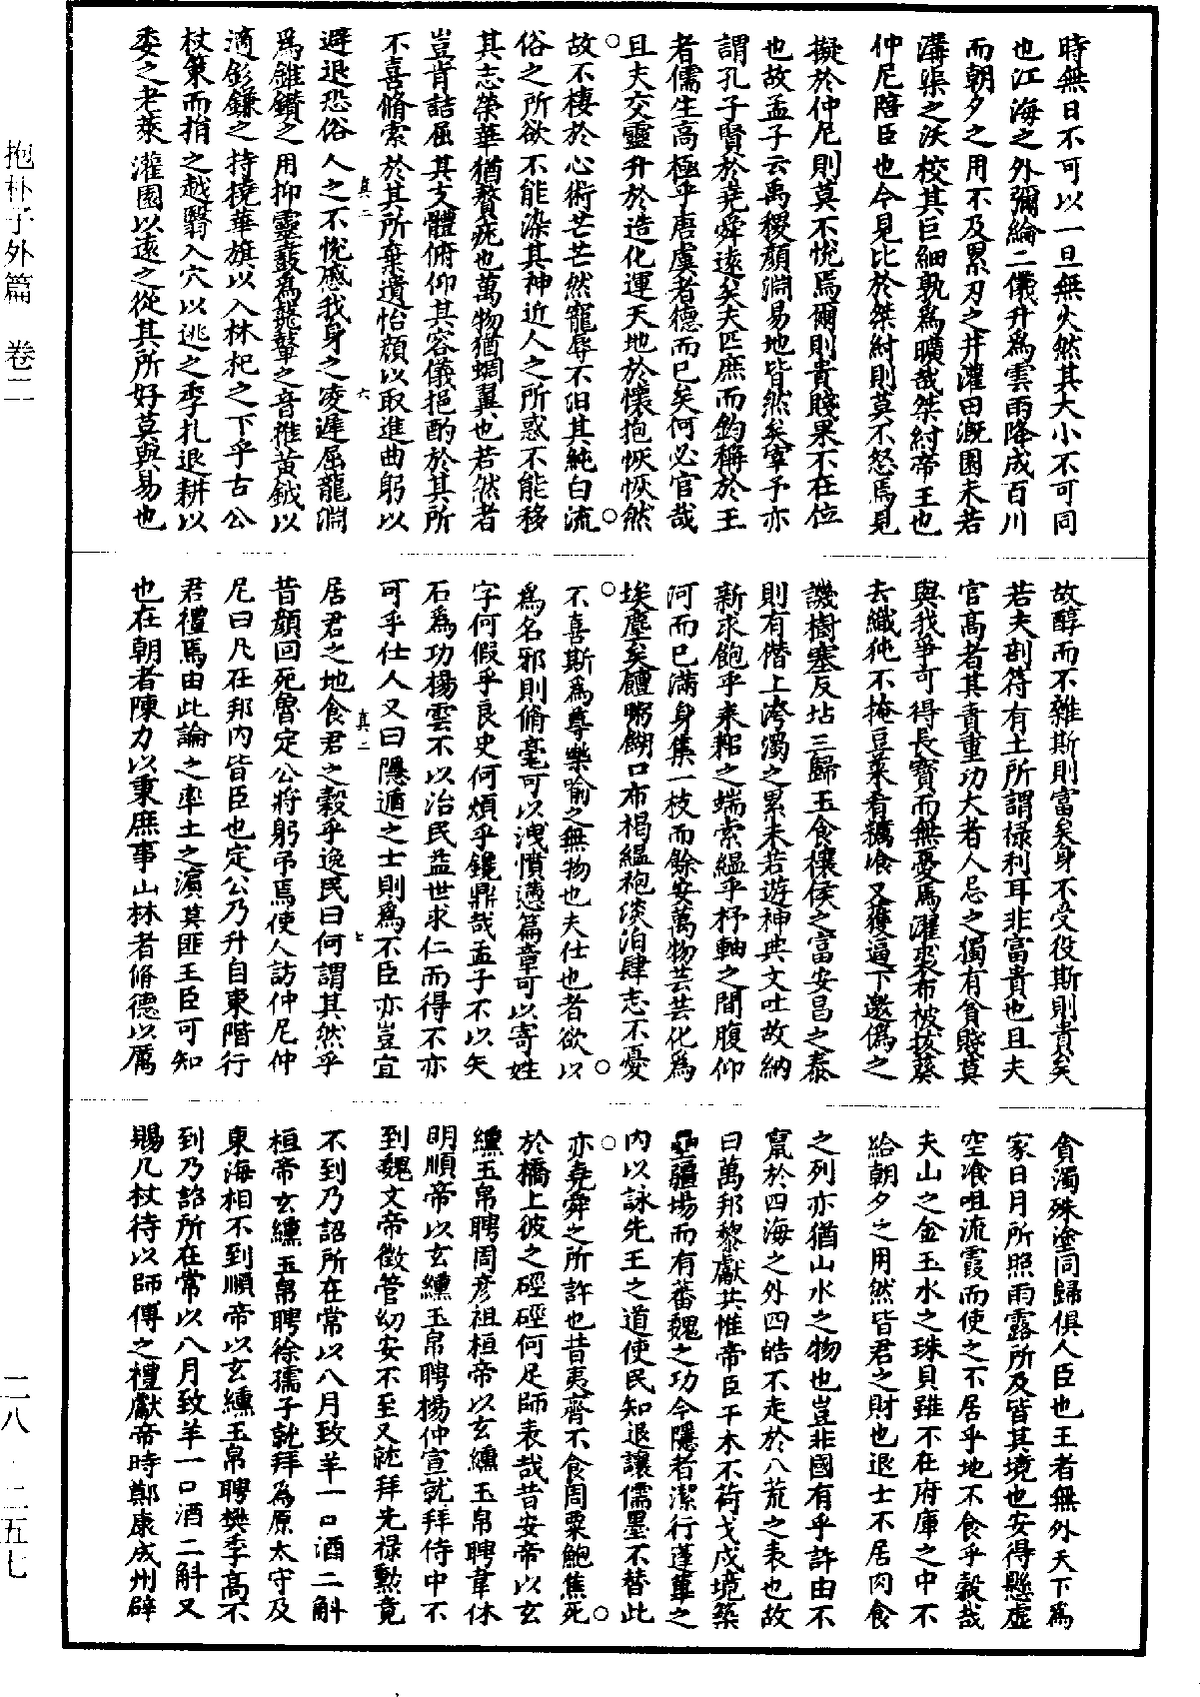 抱朴子外篇　卷二
二八・二五七
時無日不可以一旦無火然其大小不可同
也江海之外彌綸二儀升為雲雨降成百川
而朝夕之用不及累刃之井灌田溉園未若
溝渠之沃校其巨細孰為曠哉桀紂帝王也
仲尼陪臣也今見比於桀紂則莫不怒焉見
擬於仲尼則莫不悅焉爾則貴賤果不在位
也故孟子云禹稷顏淵易地皆然矣宰予亦
謂孔子賢於堯舜遠矣夫匹庶而鈞稱於王
者儒生高極乎唐虞者德而已矣何必官哉
且夫交靈升於造化運天地於懷抱恢恢然
故不棲於心術芒芒然寵辱不汨其純白流
俗之所欲不能染其神近人之所惑不能移
其志榮華猶贅疣也萬物猶蜩翼也若然者
豈肯詰屈其支體俯仰其容儀挹酌於其所
不喜脩索於其所棄遺怡顏以取進曲躬以
真二　六
避退恐俗人之不悅慼我身之凌遲屈龍淵
為錐鑽之用抑靈鼖為鼙之音推黃鉞以
適釤鎌之持撓華旗以入林杞之下乎古公
杖策而捐之越翳入穴以逃之季札退耕以
委之老萊灌園以遠之從其所好莫與易也
故醇而不雜斯則富矣身不受役斯則貴矣
若夫剖符有土所謂祿利耳非富貴也且夫
官高者其責重功大者人忌之獨有貧賤莫
與我爭可得長寶而無憂焉濯裘布被拔葵
去織純不掩豆菜肴糲飡又獲逼下邀偽之
譏樹塞反坫三歸玉食穰侯之富安昌之泰
則有僭上洿濁之累未若遊神典文吐故納
新求飽乎耒耜之端索縕乎杼軸之間腹仰
河而已滿身集一枝而餘安萬物芸芸化為
埃塵矣饘粥餬口布褐縕袍淡泊肆志不憂
不喜斯為尊樂喻之無物也夫仕也者欲以
為名邪則脩毫可以洩憤懣篇章可以寄姓
字何假乎良史何煩乎鑱鼎哉孟子不以矢
石為功楊雲不以治民益世求仁而得不亦
可乎仕人又曰隱遁之士則為不臣亦豈宜
真二　七
居君之地食君之穀乎逸民曰何謂其然乎
昔顏回死魯定公將躬弔焉使人訪仲尼仲
尼曰凡在邦內皆臣也定公乃升自東階行
君禮焉由此論之率土之濱莫匪王臣可知
也在朝者陳力以秉庶事山林者脩德以厲
貪濁殊塗同歸俱人臣也王者無外天下為
家日月所照雨露所及皆其境也安得懸虛
空飡咀流霞而使之不居乎地不食乎穀哉
夫山之金玉水之珠貝雖不在府庫之中不
給朝夕之用然皆君之財也退士不居肉食
之列亦猶山水之物也豈非國有乎許由不
竄於四海之外四皓不走於八荒之表也故
曰萬邦黎獻共惟帝臣干木不荷戈戍境築
壘疆場而有蕃魏之功今隱者潔行蓬蓽之
內以詠先王之道使民知退讓儒墨不替此
亦堯舜之所許也昔夷齊不食周粟鮑焦死
於橋上彼之硜硜何足師表哉昔安帝以玄
纁玉帛聘周彥祖桓帝以玄纁玉帛聘韋休
明順帝以玄纁玉帛聘楊仲宣就拜侍中不
到魏文帝徵管幼安不至又就拜光祿勳竟
不到乃詔所在常以八月致羊一口酒二斛
桓帝玄纁玉帛聘徐孺子就拜為原太守及
東海相不到順帝以玄纁玉帛聘樊季高不
到乃詔所在常以八月致羊一口酒二斛又
賜几杖待以師傅之禮獻帝時鄭康成州辟